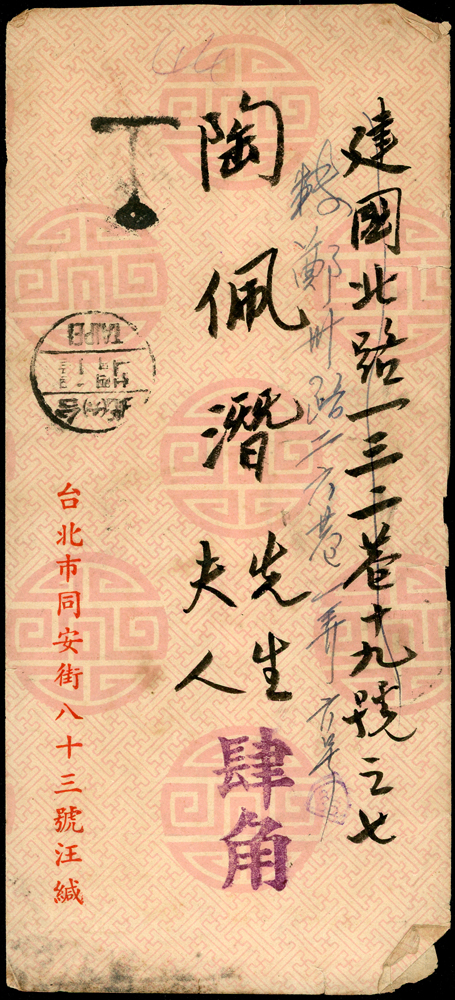 建國北路一三二巷十九號之七
鄭州路二六巷一弄六号
陶佩潛先生
夫人
肆角
TAIPEI
台北市同安街八十三號汪緘